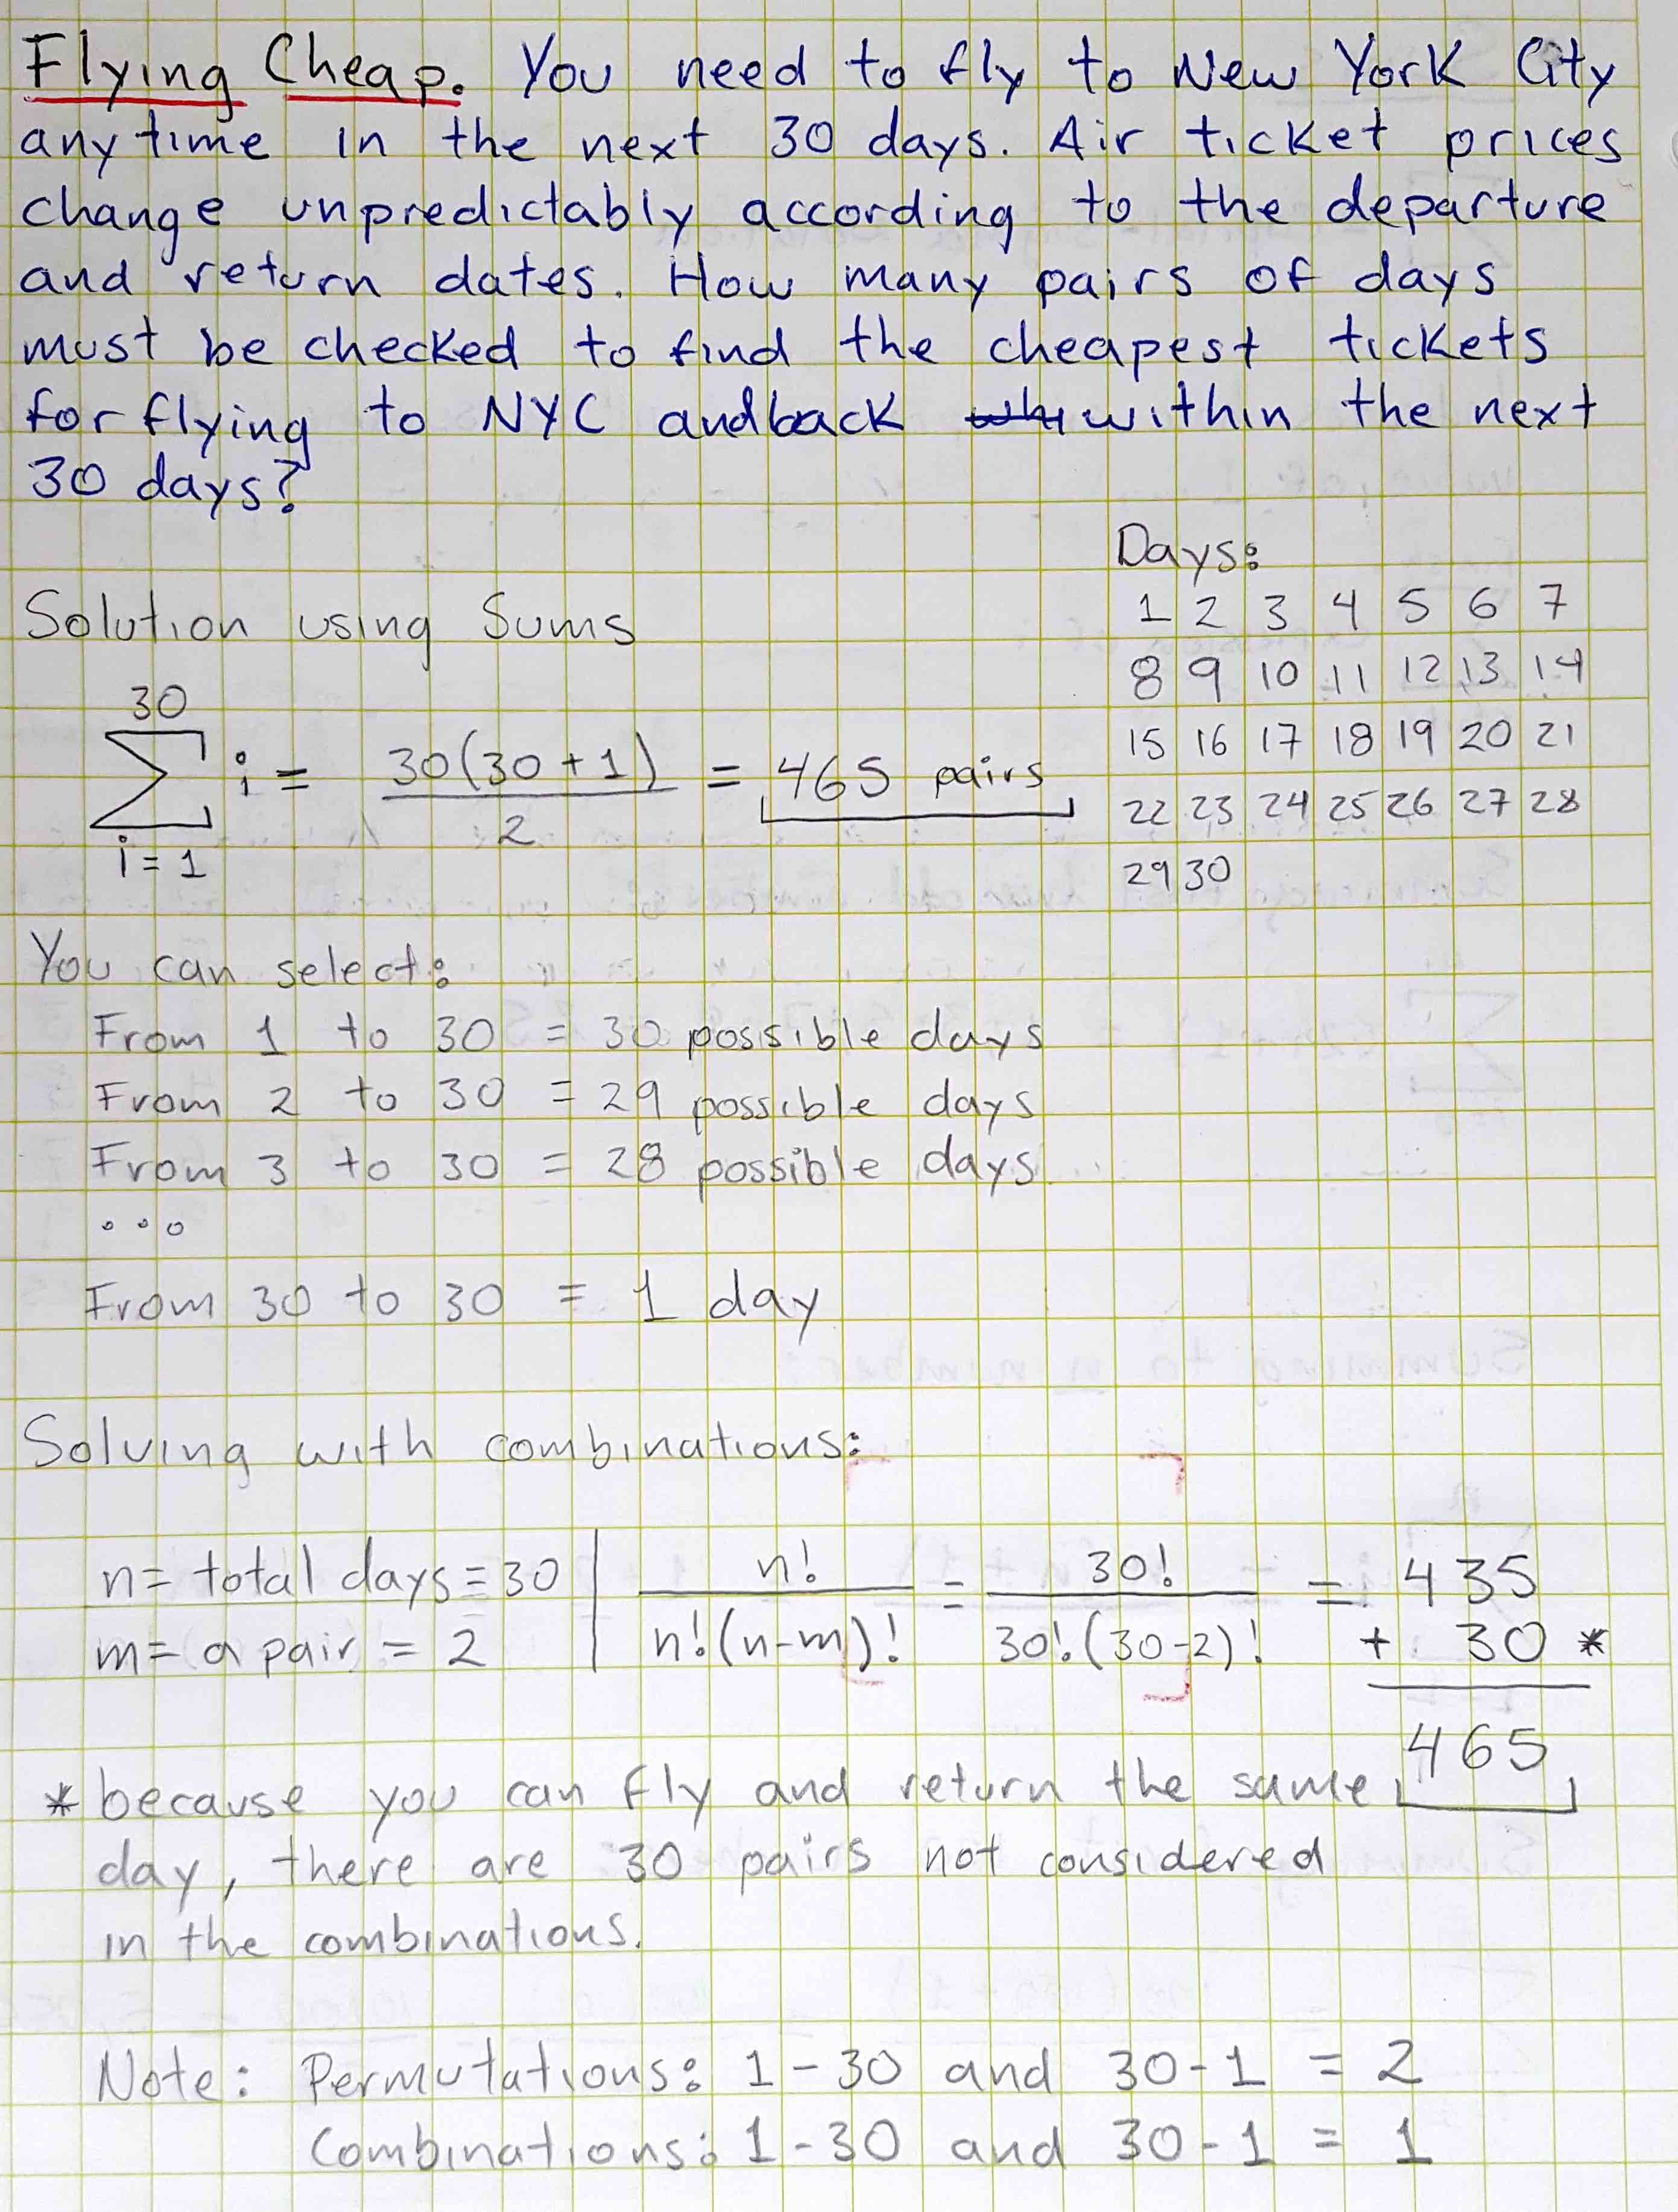 Flying Cheap. You need to fly to New York City
anytime in the next 30 days. Air ticket prices
change unpredictably according to the departure
and return dates. How many pairs of days
must be checked to find the cheapest tickets
for flying to NYC and back within the next
30 days?
Days:
1 2 3 4 5 6 7
8 9 10 11 12 13 14
15 16 17 18 19 20 21
22 23 24 25 26 27 28
29 30
Solution using Sums
30
∑ i = 30(30+1) / 2 = 465 pairs
i = 1
You can select:
From 1 to 30 = 30 possible days
From 2 to 30 = 29 possible days
From 3 to 30 = 28 possible days
...
From 30 to 30 = 1 day
Solving with combinations:
n = total days = 30 | n! / n!(n-m)! = 30! / 30!(30-2)! = 435
m = a pair = 2
+ 30 *
465
* because you can fly and return the same
day, there are 30 pairs not considered
in the combinations.
Note: Permutations: 1 - 30 and 30 - 1 = 2
Combinations: 1 - 30 and 30 - 1 = 1